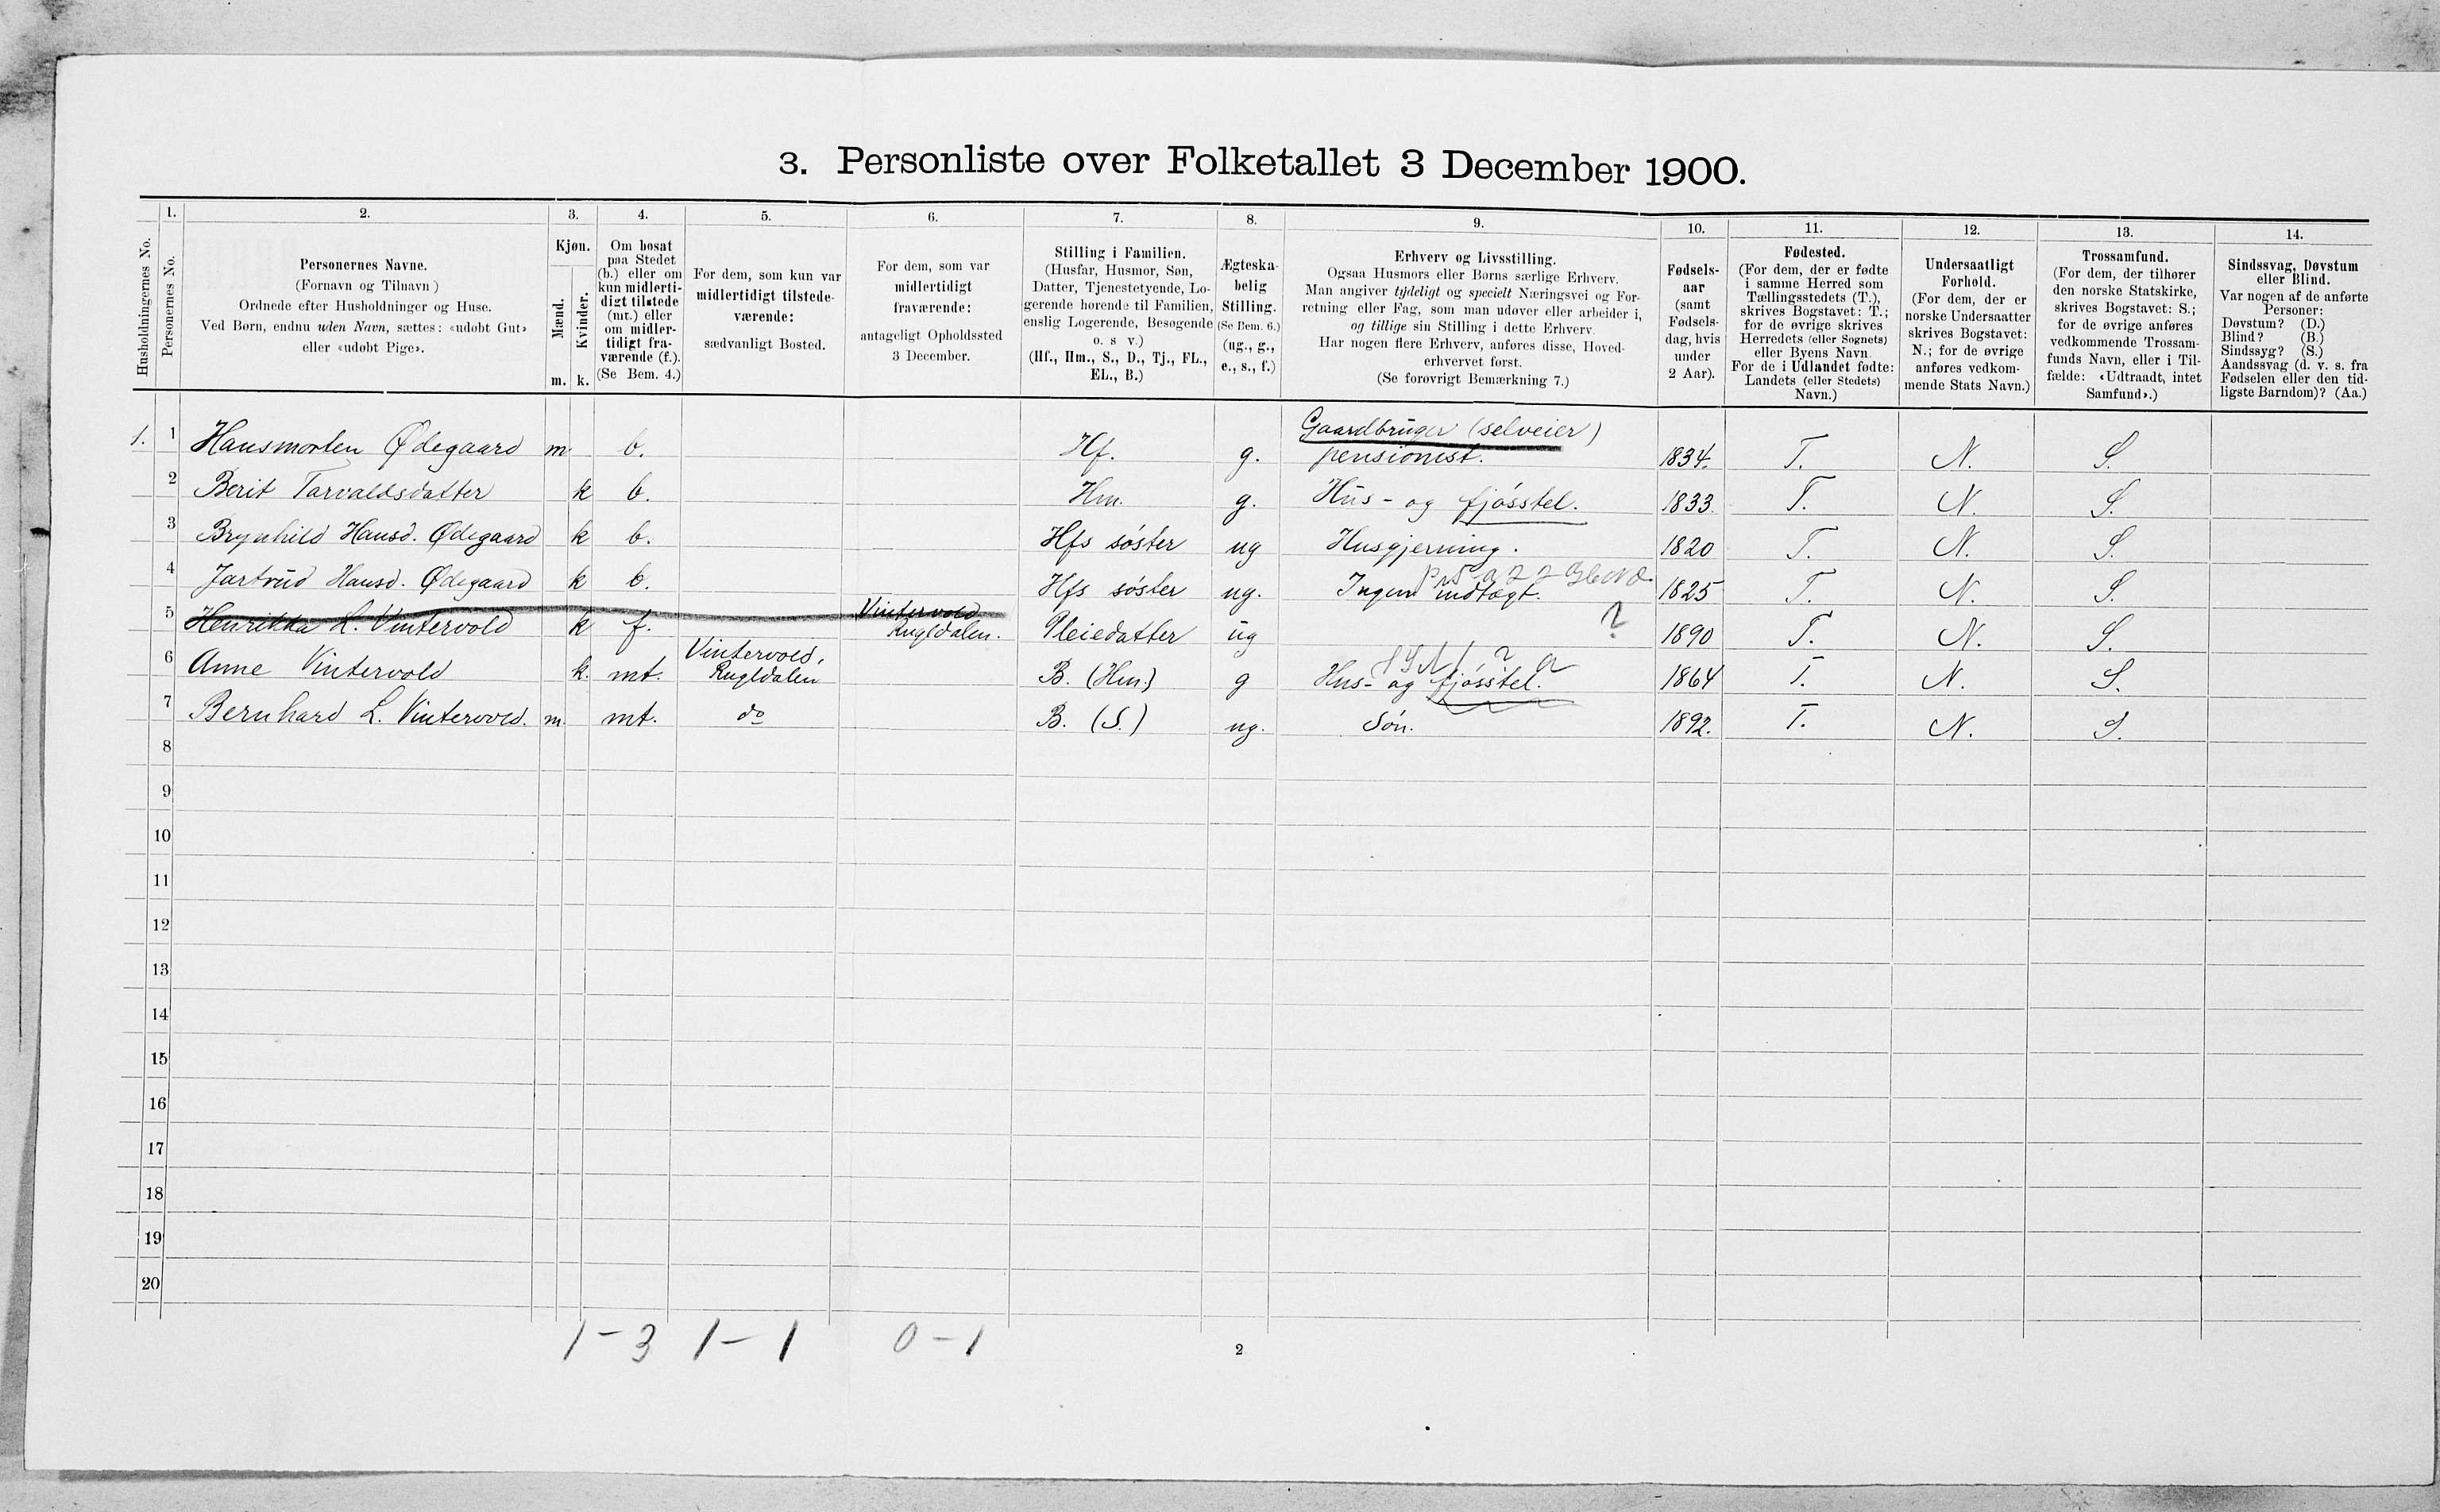 3. Personliste over Folketallet 3 December 1900.
1. 2. 3. 4. 5. 6. 7. 8. 9. 10. 11. 12. 13. 14.
Husholdningernes No.
Personernes No.
Personernes Navne.
(Fornavn og Tilnavn)
Ordnede efter Husholdninger og Huse.
Ved Børn, endnu uden Navn, sættes: «udøbt Gut»
eller «udøbt Pige».
Kjøn.
Mænd.
Kvinder.
m. k.
Om bosat
paa Stedet
(b.) eller om
kun midlerti-
digt tilstede
(mt.) eller
om midler-
tidigt fra-
værende (f.).
(Se Bem. 4.)
For dem, som kun var
midlertidigt tilstede-
værende:
sædvanligt Bosted.
For dem, som var
midlertidigt
fraværende:
antageligt Opholdssted
3 December.
Stilling i Familien.
(Husfar, Husmor, Søn,
Datter, Tjenestetyende, Lo-
gerende hørende til Familien,
enslig Logerende, Besøgende
o. s v.)
(Hf., Hm., S., D., Tj., FL.,
EL., B.)
Ægteska-
belig
Stilling.
(Se Bem. 6.)
(ug., g.,
e., s., f.)
Erhverv og Livsstilling.
Ogsaa Husmors eller Børns særlige Erhverv.
Man angiver tydeligt og specielt Næringsvei og For-
retning eller Fag, som man udøver eller arbeider i,
og tillige sin Stilling i dette Erhverv.
Har nogen flere Erhverv, anføres disse, Hoved-
erhvervet først.
(Se forøvrigt Bemærkning 7.)
Fødsels-
aar
(samt
Fødsels-
dag, hvis
under
2 Aar).
Fødested.
(For dem, der er fødte
i samme Herred som
Tællingsstedets (T.),
skrives Bogstavet: T.;
for de øvrige skrives
Herredets (eller Sognets)
eller Byens Navn.
For de i Udlandet fødte:
Landets (eller Stedets)
Navn.)
Undersaatligt
Forhold.
(For dem, der er
norske Undersaatter
skrives Bogstavet:
N.; for de øvrige
anføres vedkom-
mende Stats Navn.)
Trossamfund.
(For dem, der tilhører
den norske Statskirke,
skrives Bogstavet: S.;
for de øvrige anføres
vedkommende Trossam-
funds Navn, eller i Til-
fælde: «Udtraadt, intet
Samfund».)
Sindssvag, Døvstum
eller Blind.
Var nogen af de anførte
Personer:
Døvstum? (D.)
Blind? (B.)
Sindssyg? (S.)
Aandssvag (d. v. s. fra
Fødselen eller den tid-
ligste Barndom)? (Aa.)
Gaardbruger (selveier)
1. 1 Hansmorten Ødegaard m b. Hf. g. pensionist. 1834. T. N. S.
2 Berit Tarvaldsdatter k b. Hm. g. Hus- og fjøsstel. 1833. T. N. S.
3 Brynhild Hansd. Ødegaard k b. Hfs søster ug Husgjerning. 1820 T. N. S.
4 Jartrud Hansd. Ødegaard k b. Hfs søster ug. Ingen indtægt. 1825 T. N. S.
Vintervold
5 Henrikka L. Vintervold k f. Rugldalen. Pleiedatter ug ? 1890 T. N. S.
Vintervold,
6 Anne Vintervold k. mt. Rugldalen B. (Hm.) g Hus- og fjøsstel. 1864 T. N. S.
7 Bernhard L. Vintervold. m. mt. do B. (S.) ug. Søn. 1892. T. N. S.
8
9
10
11
12
13
14
15
16
17
18
19
20
1-3 1-1 0-1
2